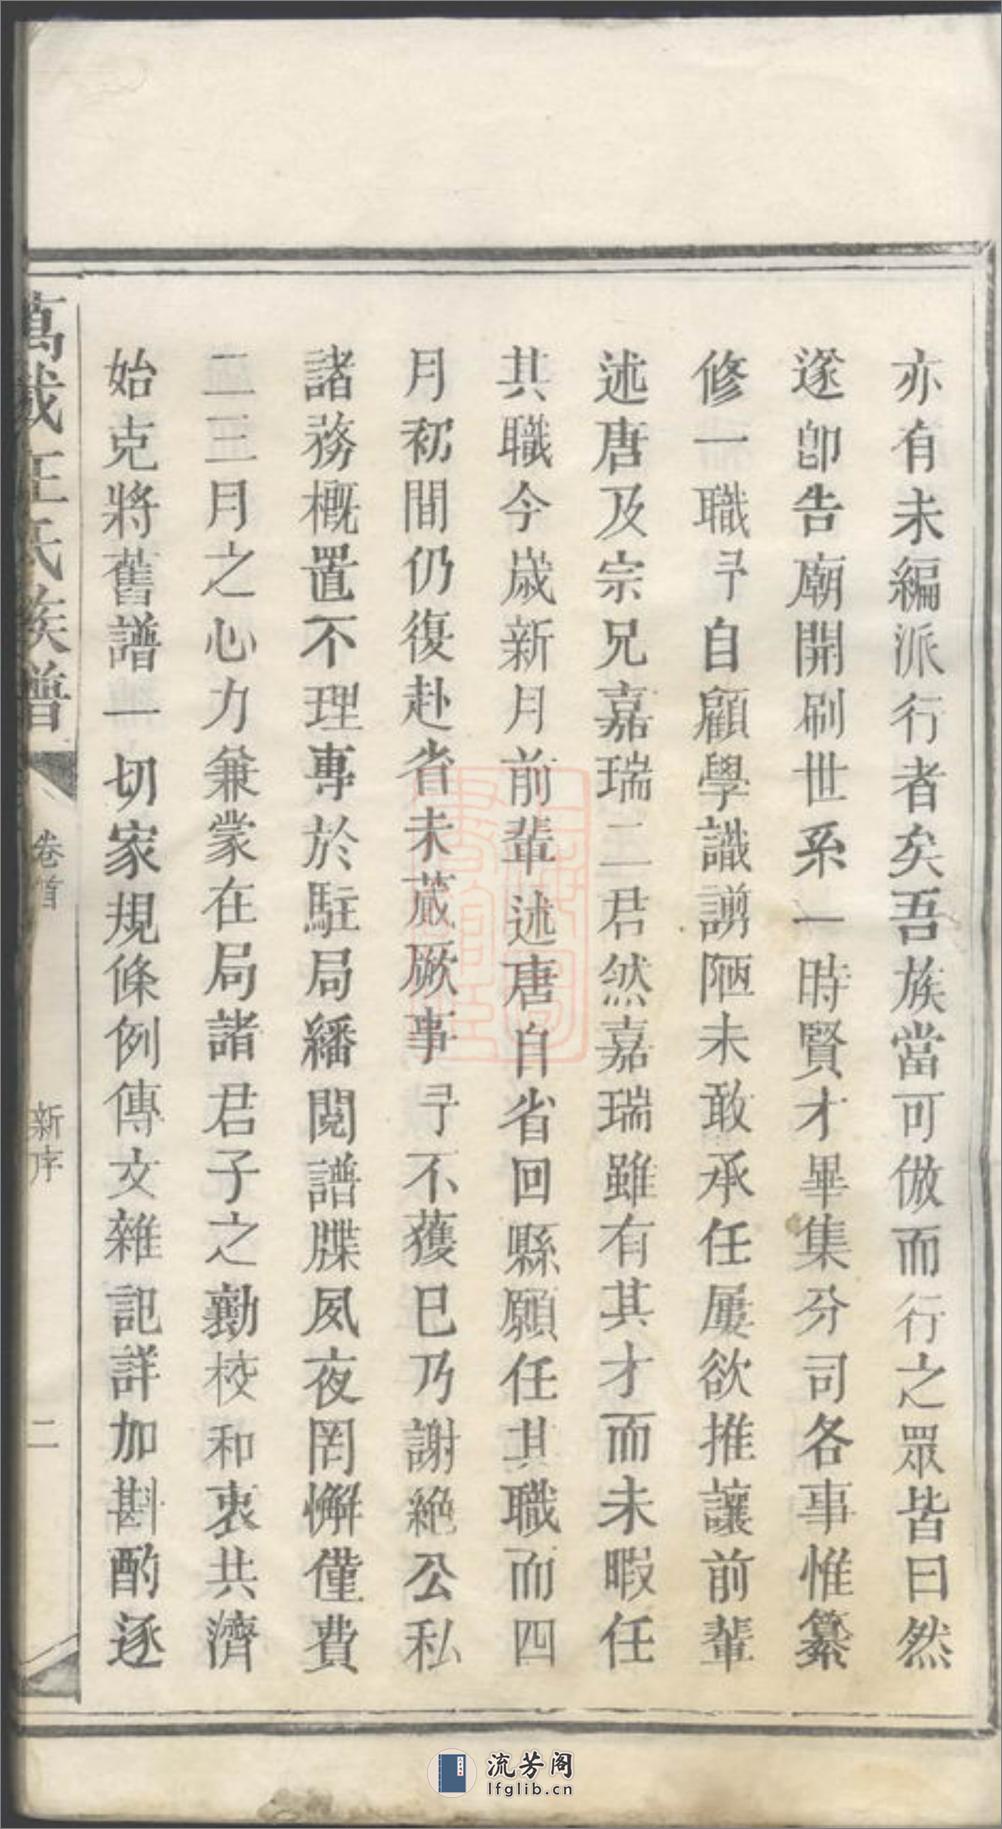 亦有未編派行者矣吾族當可倣而行之眾皆曰然
遂卽告廟開刷世系一時賢才畢集分司各事惟纂
修一職予自顧學識謭陋未敢承任屢欲推讓前輩
述唐及宗兄嘉瑞二君然嘉瑞雖有其才而未暇任
其職今歲新月前輩述唐自省回縣願任其職而四
月初間仍復赴省未蕆厥事予不獲已乃謝絕公私
諸務槪置不理專於駐局繙閱譜牒夙夜罔懈僅費
二三月之心力兼蒙在局諸君子之勷校和衷共濟
始克將舊譜一切家規條例傳文雜記詳加斟酌逐
萬載王氏族譜
卷首
新序
二
流芳阁
lfglib.cn